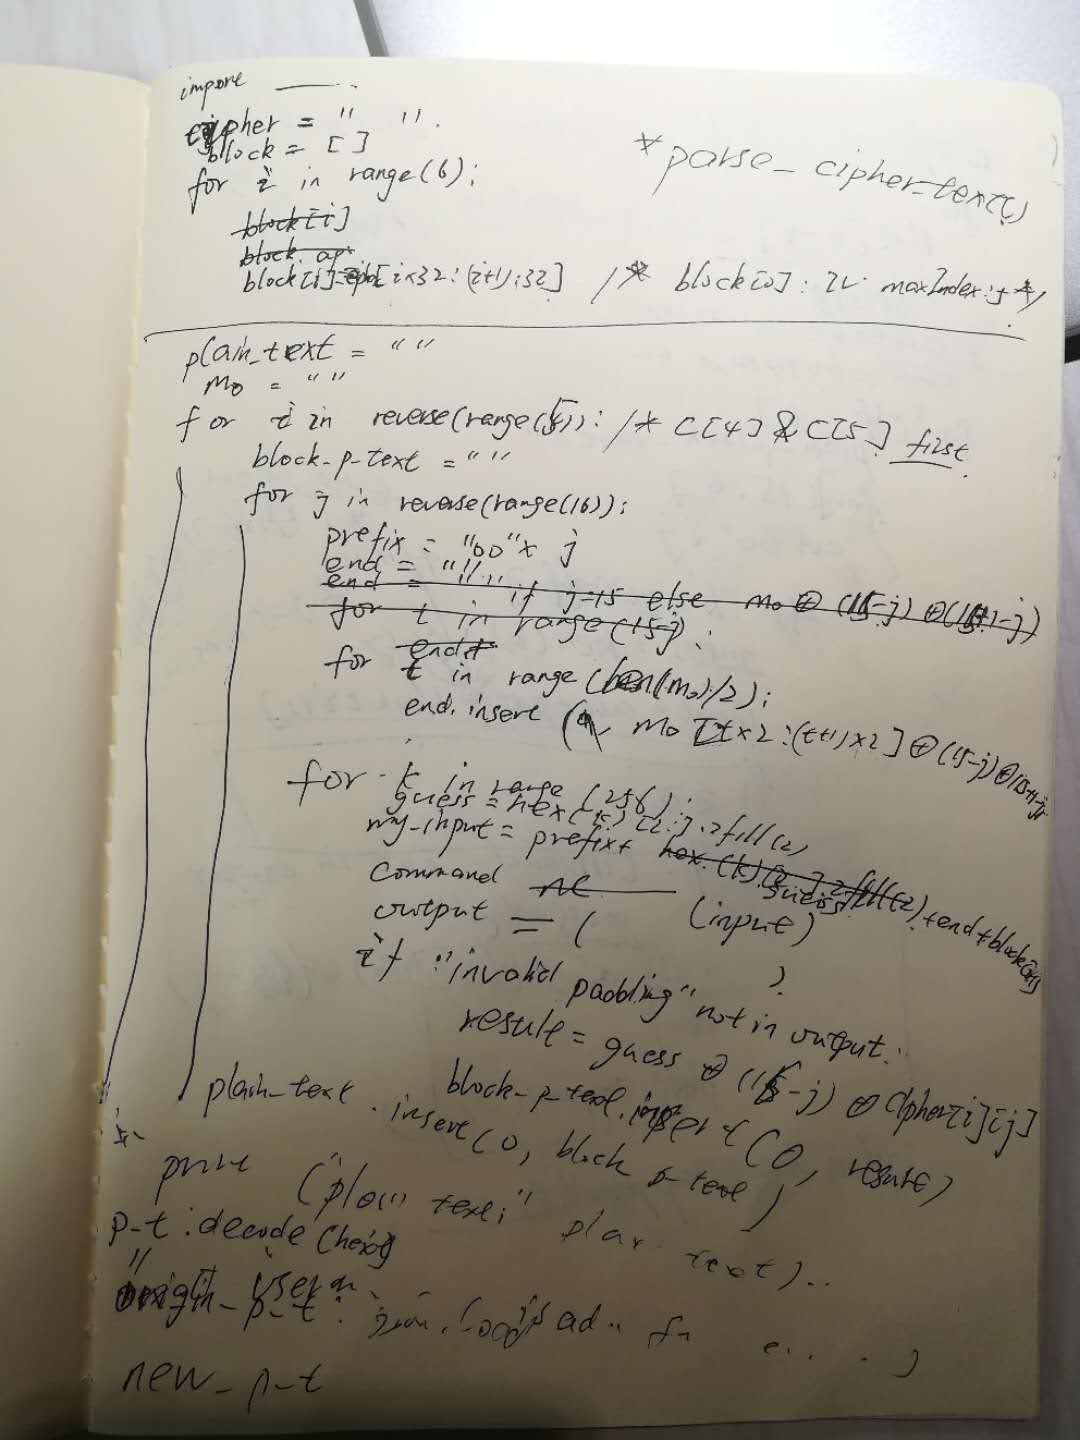 import
cipher = " ".
block = [ ]
for i in range(6):
* parse_cipher_text()
block[i]
block.ap
block[i]= [i×32 : (i+1):32] /* block[0]: maxIndex: */
plain_text = " "
m0 = " "
for i in reverse(range(5)): /* C[4] & C[5] first
block-p-text = " "
for j in reverse(range(16)):
prefix = "00" × j
end = " "
end = " " if j=15 else m0 ⊕ (15-j) ⊕ (15+1-j)
for t in range (15-j):
end
for t in range (len(m0)/2):
end.insert ( m0 [t×2 : (t+1)×2] ⊕ (15-j) ⊕ (15+1-j)
for k in range (256):
guess = hex(k) [2:].zfill(2)
my-input = prefix + hex(k)[2:].zfill(2) guess + end + block[i+1]
command nc
output = ( (input)
if "invalid padding" not in output:
result = guess ⊕ (15-j) ⊕ Cipher[i][j]
block-p-text.insert (0, result)
plain-text.insert (0, block p-text)
print ("plain text:" plain text)
p-t.decode (hex)
origin-p-t:
new-p-t